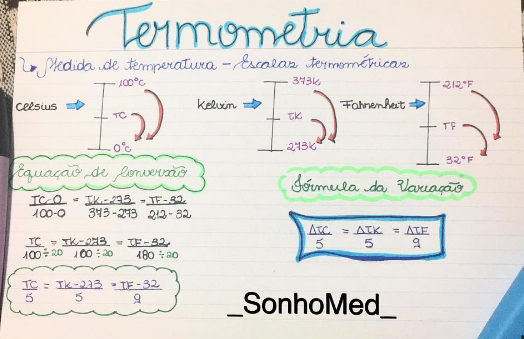 Termometria
↳ Medida de temperatura – Escalas termométricas
Celsius 100°C TC 0°C
Kelvin 373K TK 273K
Fahrenheit 212°F TF 32°F
Equação de Conversão
TC-0 / 100-0 = TK-273 / 373-273 = TF-32 / 212-32
TC / 100÷20 = TK-273 / 100÷20 = TF-32 / 180÷20
TC / 5 = TK-273 / 5 = TF-32 / 9
Fórmula da Variação
ΔTC / 5 = ΔTK / 5 = ΔTF / 9
_SonhoMed_